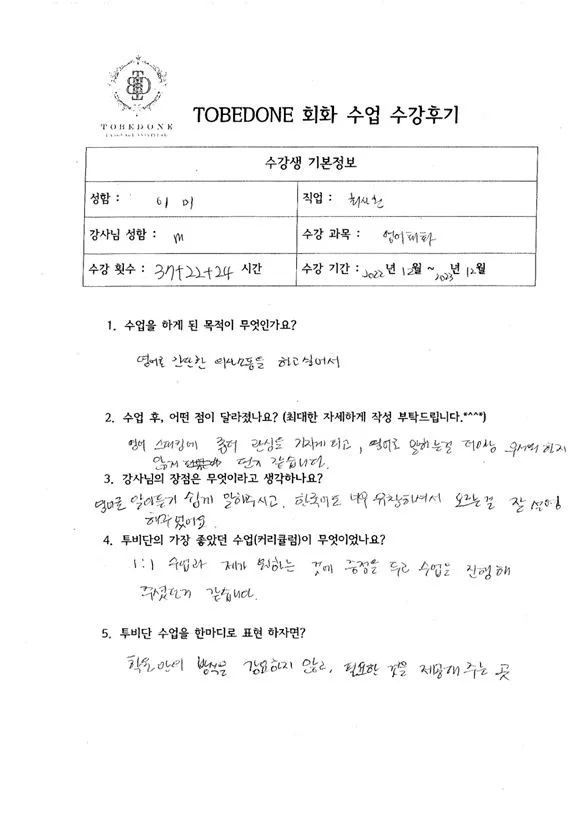 TOBEDONE
TOBEDONE 회화 수업 수강후기
수강생 기본정보
성함 : 이 미
직업 : 회사원
강사님 성함 : M
수강 과목 : 영어회화
수강 횟수 : 37+22+24 시간
수강 기간 : 2022년 12월 ~ 2023년 12월
1. 수업을 하게 된 목적이 무엇인가요?
영어로 간단한 의사소통을 하고싶어서
2. 수업 후, 어떤 점이 달라졌나요? (최대한 자세하게 작성 부탁드립니다.*^^*)
영어 스피킹에 좀더 관심을 가지게 되고, 영어로 말하는걸 더이상 무서워 하지
않게 된거 같습니다.
3. 강사님의 장점은 무엇이라고 생각하나요?
영어로 알아듣기 쉽게 말해주시고, 한국어도 너무 유창하셔서 모르는걸 잘 설명
해주셨어요
4. 투비단의 가장 좋았던 수업(커리큘럼)이 무엇이었나요?
1:1 수업과 제가 원하는 것에 중점을 두고 수업을 진행해
주셨던거 같습니다.
5. 투비단 수업을 한마디로 표현 하자면?
학원만의 방식을 강요하지 않고, 필요한 것을 제공해 주는 곳